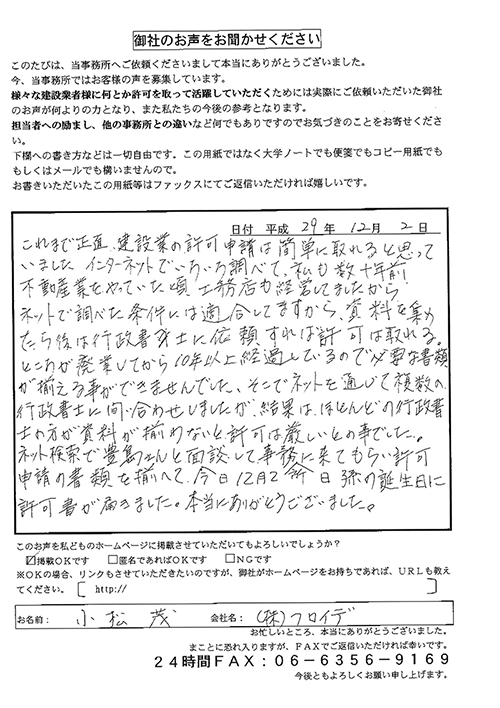 御社のお声をお聞かせください
このたびは、当事務所へご依頼くださいまして本当にありがとうございました。
今、当事務所ではお客様の声を募集しています。
様々な建設業者様に何とか許可を取って活躍していただくためには実際にご依頼いただいた御社
のお声が何よりの力となり、また私たちの今後の参考となります。
担当者への励まし、他の事務所との違いなど何でもありですのでお気づきのことをお寄せくださ
い。
下欄への書き方などは一切自由です。この用紙ではなく大学ノートでも便箋でもコピー用紙でも
もしくはメールでも構いませんので。
お書きいただいたこの用紙等はファックスにてご返信いただければ嬉しいです。
日付 平成 29 年 12 月 2 日
これまで正直、建設業の許可申請は簡単に取れると思って
いました インターネットでいろいろ調べて、私も数十年前
不動産業をやっていた頃 工務店も経営してましたから
ネットで調べた条件には適合してますから、資料を集め
たら後は行政書士に依頼すれば許可は取れる。
ところが廃業してから10年以上経過しているので必要な書類
が揃える事ができませんでした、そこでネットを通じて複数の
行政書士に問い合わせしましたが、結果は、ほとんどの行政書
士の方が資料が揃わないと、許可は厳しいとの事でした。
ネット検索で豊島さんと面談して、事務所に来てもらい許可
申請の書類を揃へて、今日12月2日孫の誕生日に
許可書が届きました。本当にありがとうございました。
このお声を私どものホームページに掲載させていただいてもよろしいでしょうか？
☑掲載OKです □匿名であればOKです □NGです
※OKの場合、リンクもさせていただきたいのですが、御社がホームページをお持ちであれば、URLも教え
てください。［ http:// ］
お名前： 小松 茂 会社名： (株)フロイデ
お忙しいところ、本当にありがとうございました。
まことに恐れ入りますが、FAXでご返信いただければ幸いです。
24時間FAX：06-6356-9169
今後ともよろしくお願い申し上げます。